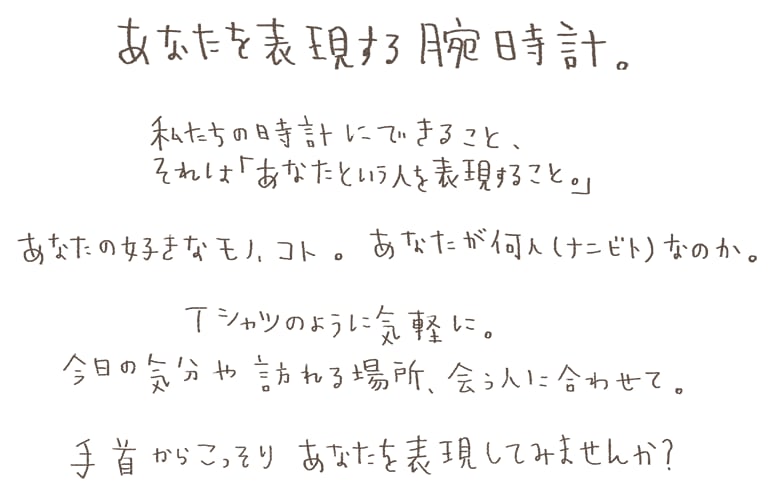 あなたを表現する腕時計。
私たちの時計にできること、
それは「あなたという人を表現すること。」
あなたの好きなモノ、コト。 あなたが何人(ナニビト)なのか。
Tシャツのように気軽に。
今日の気分や訪れる場所、会う人に合わせて。
手首からこっそり あなたを表現してみませんか?